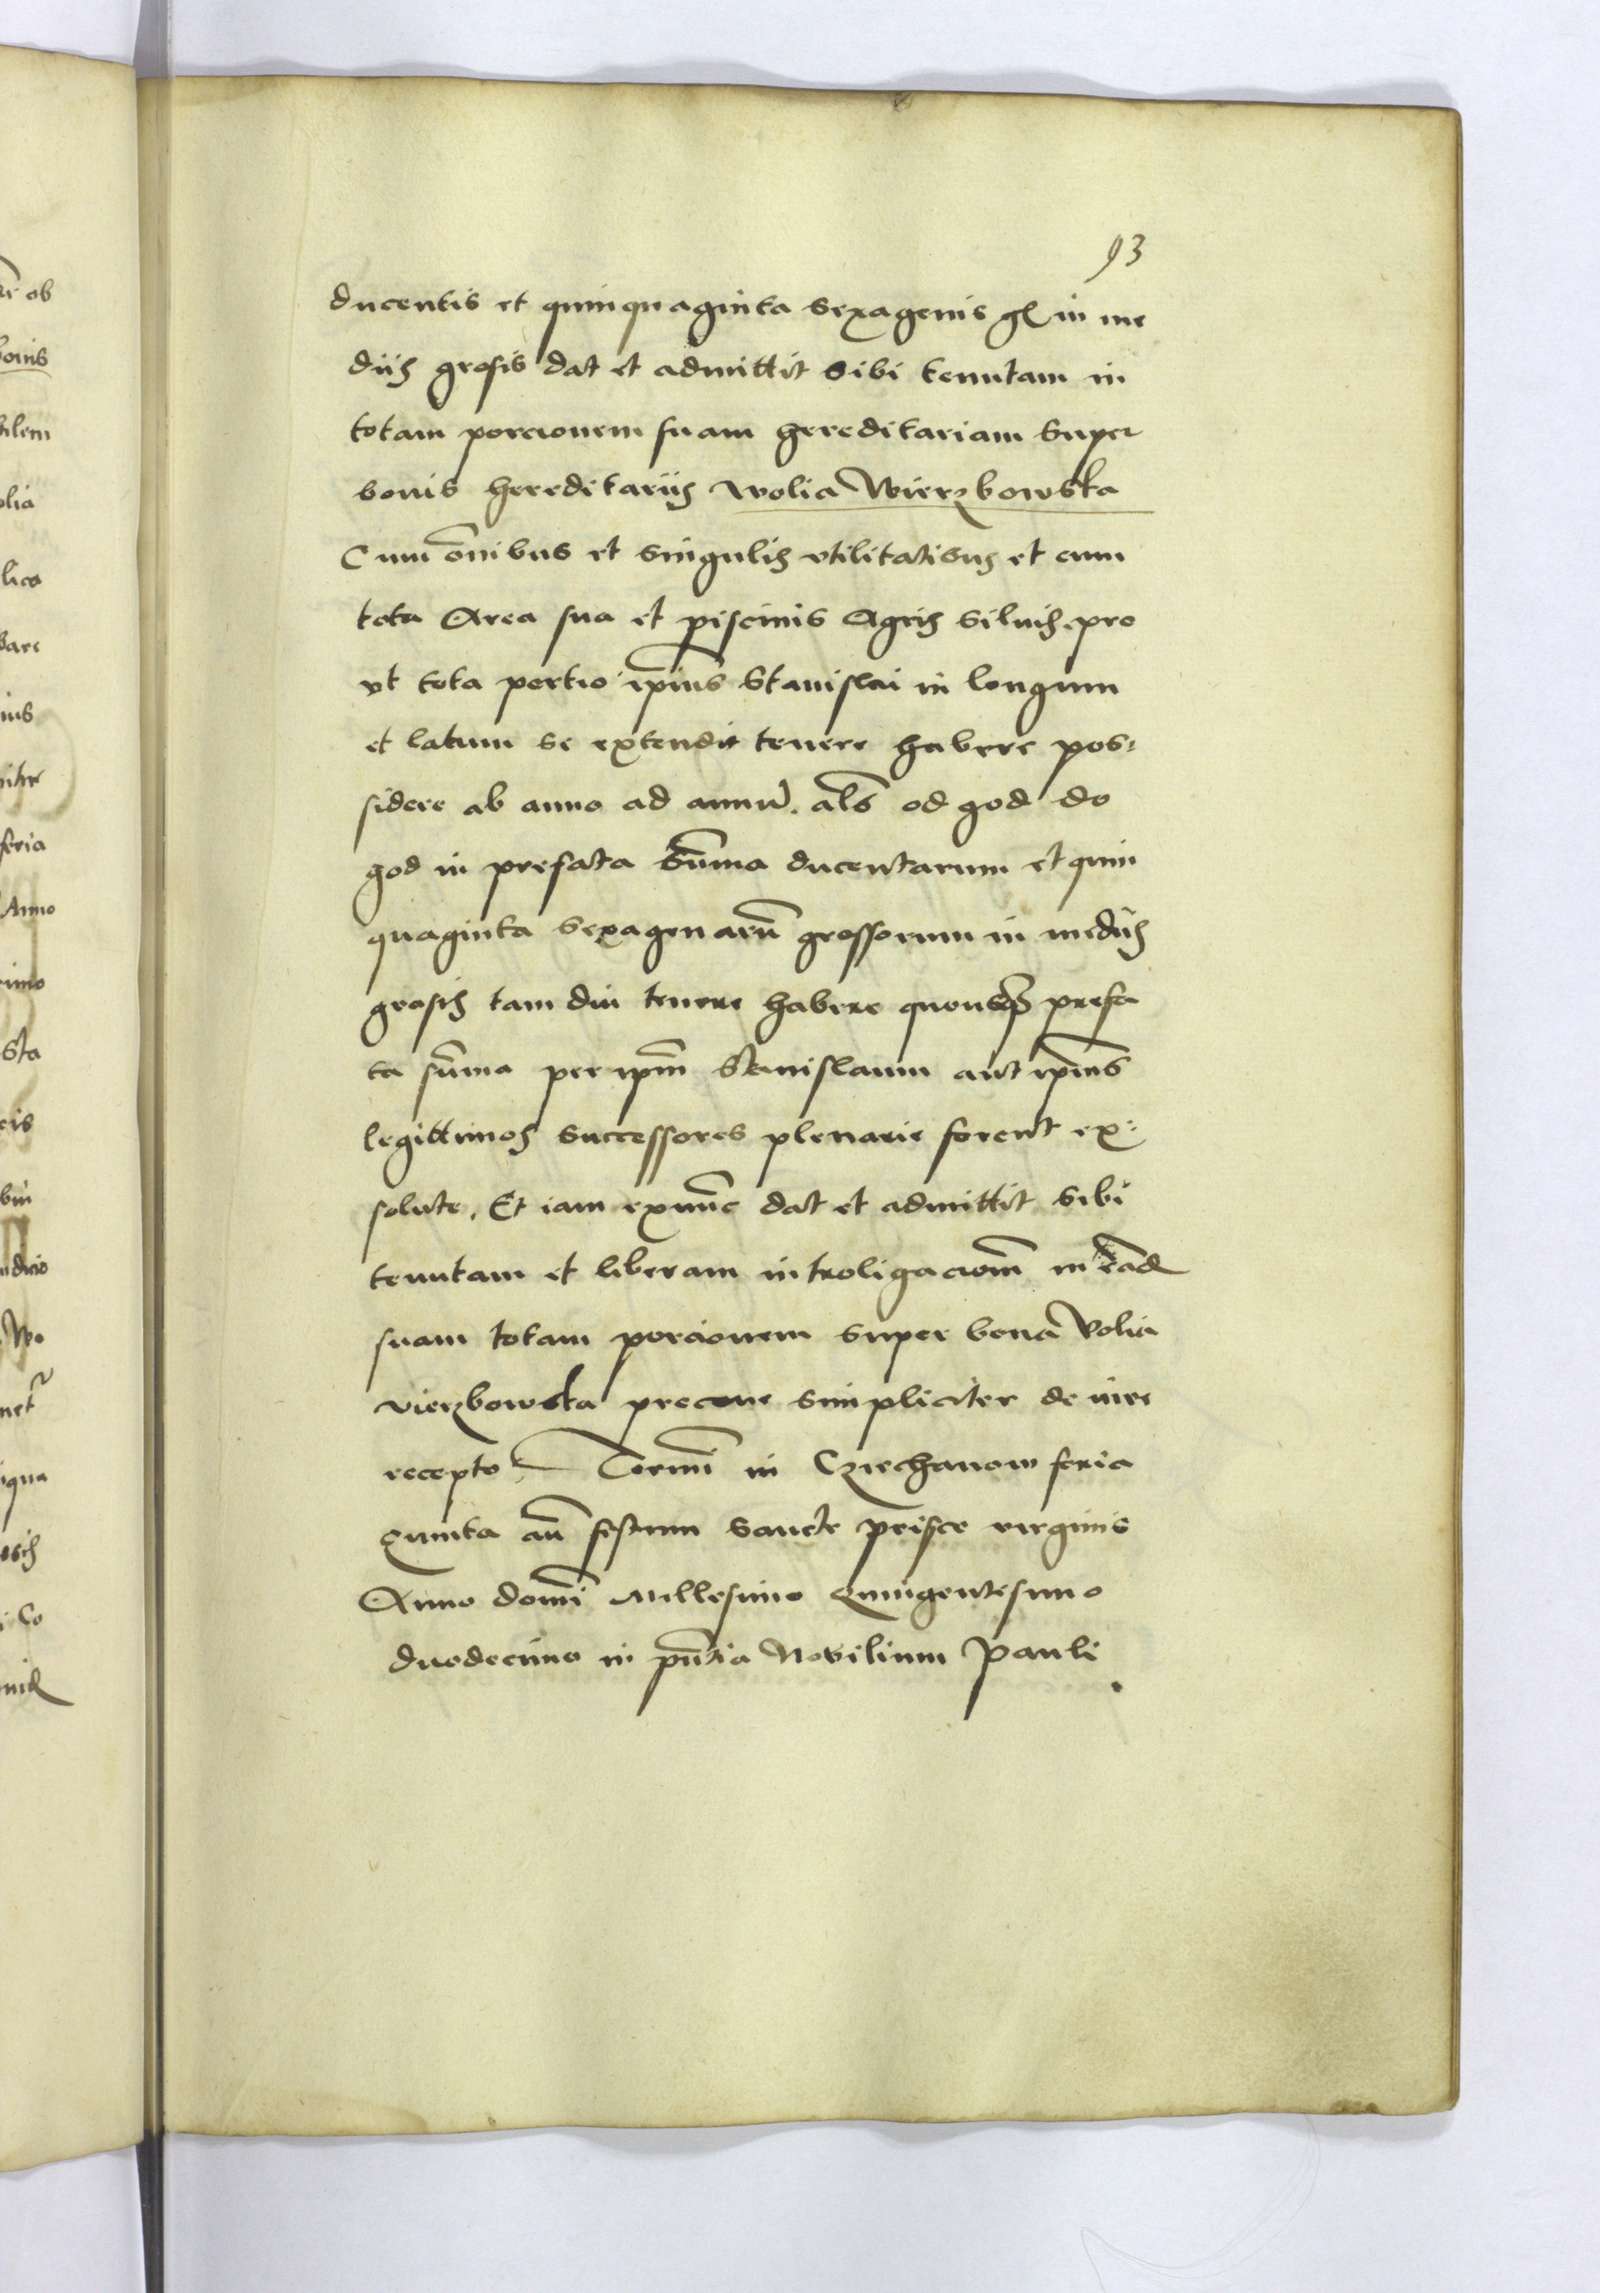 93
ducentis et quinquaginta sexagenis gl in me
diis grosis dat et admittit sibi tenutam in
totam porcionem suam hereditariam super
bonis hereditariis Wolia Wierzbowska
Cum oĩnibus et singulis vtilitatibus et cum
tota Area sua et piscinis Agris siluis pro
vt tota portio ip̃ius Stanislai in longum
et latum se extendit tenere habere pos:
sidere ab anno ad annũ als̃ od god do
god in prefata Sum̃a ducentarum et quin
quaginta sexagenarũ grossorum in mediis
grosis tam diu tenere habere quousqꝫ prefa
ta sũma per ip̃m Stanislaum aut ip̃ius
legittimos successores plenarie forent ex:
solute. Et iam exnũc dat et admittit sibi
tenutam et liberam introligaciom̃ in eãd
suam totam porcionem super bona Volia
vierzbowska precone simpliciter de iure
recepto Termĩ in Czrechanow feria
quinta añ festum sancte Prisce virginis
Anno domĩ Millesimo Quingentesimo
duodecimo in pñtia Nobilium Pauli